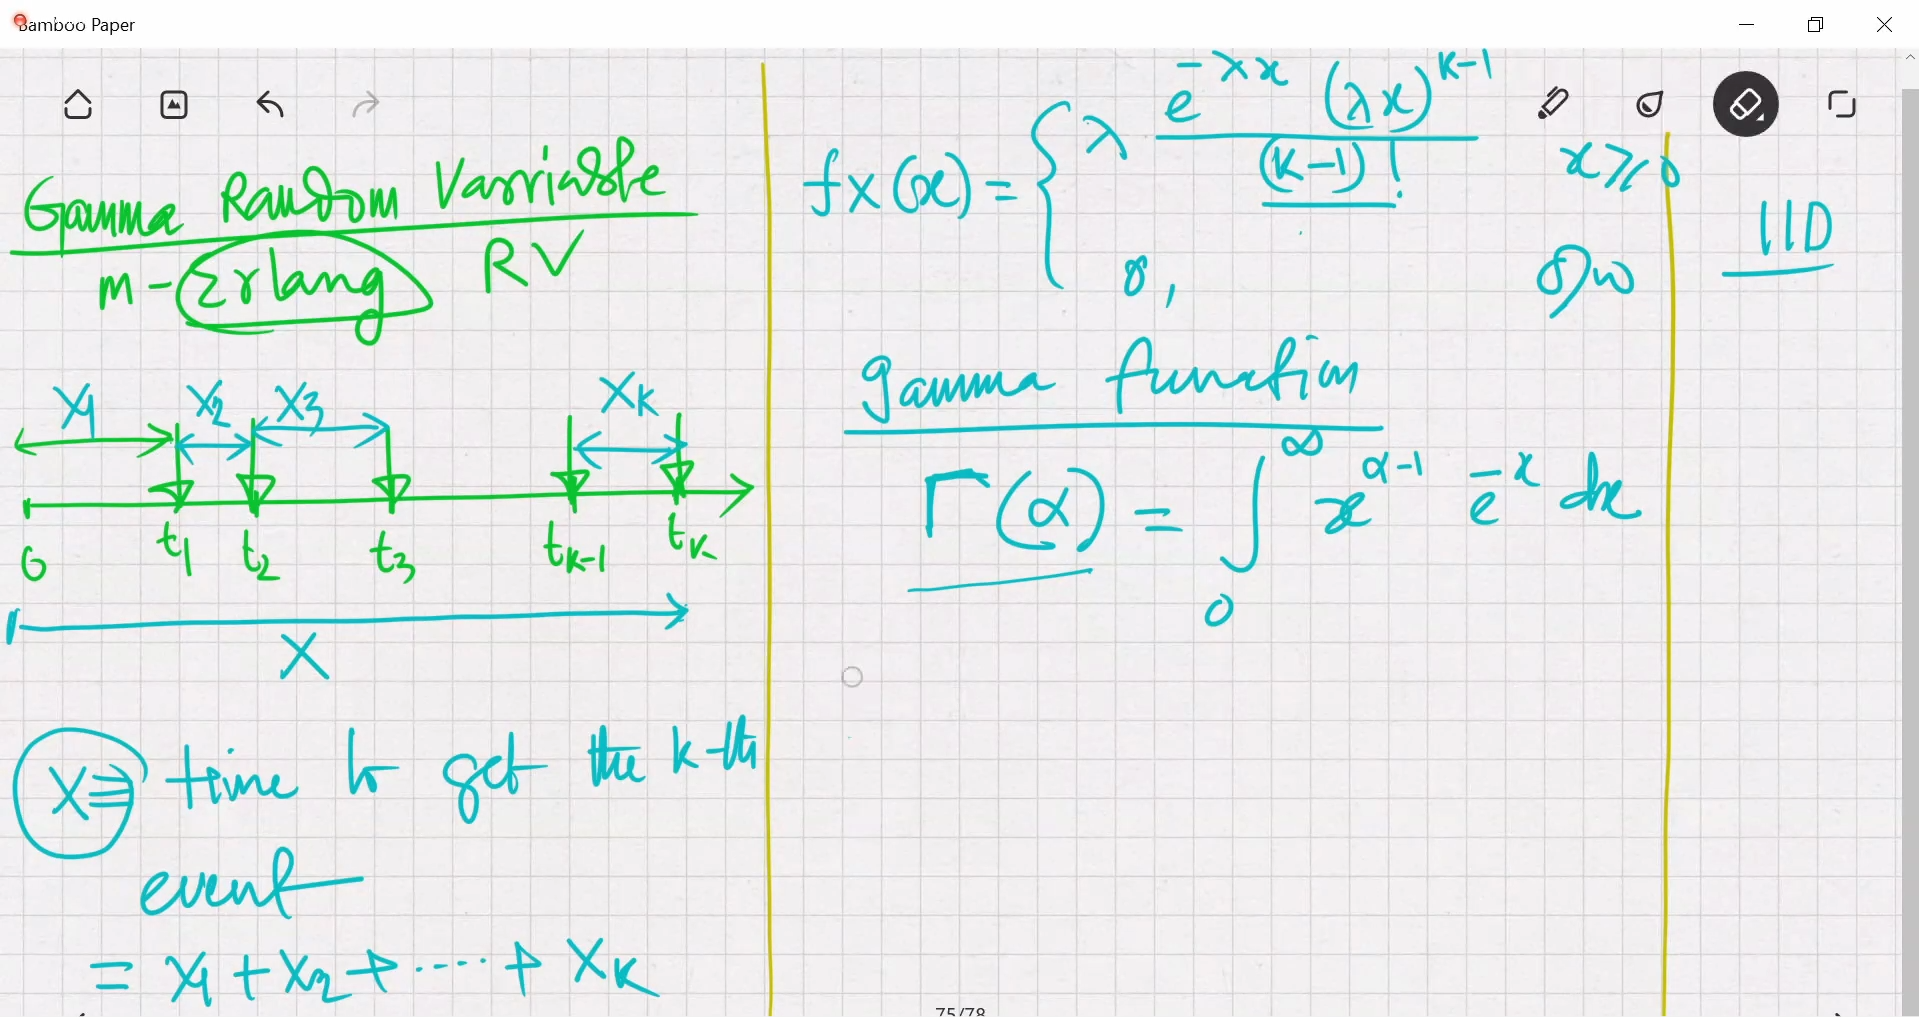 Bamboo Paper
Gamma Random Variable
m - Erlang RV
X1 X2 X3 XK
0 t1 t2 t3 tK-1 tK
X
X ≡ time to get the K-th
event
= X1 + X2 + ..... + XK
fX(x) = { λ e^-λx (λx)^K-1 / (K-1)! x ≥ 0
0, o/w
gamma function
Γ(α) = ∫ 0 ∞ x^α-1 e^-x dx
IID
75/78